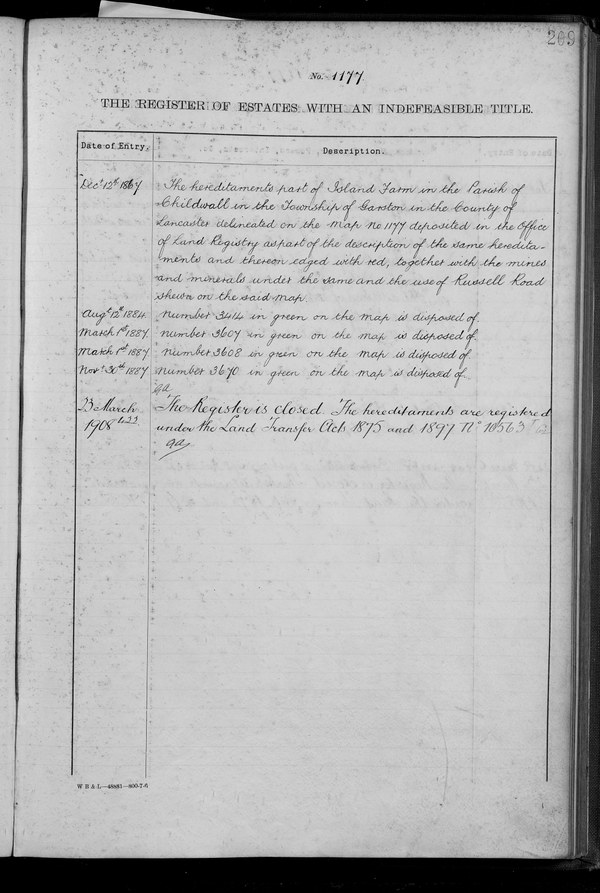 269
No. 1177
THE REGISTER OF ESTATES WITH AN INDEFEASIBLE TITLE.
Date of Entry.
Description.
Decr. 12th 1867
The hereditaments part of Island Farm in the Parish of
Childwall in the Township of Garston in the County of
Lancaster delineated on the Map No 1177 deposited in the Office
of Land Registry as part of the description of the same heredita-
ments and thereon edged with red, together with the mines
and minerals under the same and the use of Russell Road
shewn on the said map.
Augt. 12th 1884. Number 3414 in green on the map is disposed of.
March 1st 1887. Number 3607 in green on the map is disposed of.
March 1st 1887. Number 3608 in green on the map is disposed of.
Novr. 30th 1887. Number 3670 in green on the map is disposed of.
23 March
1908
The Register is closed. The hereditaments are registered
under the Land Transfer Acts 1875 and 1897 No. 10563
W B & L—48881—800-7-6